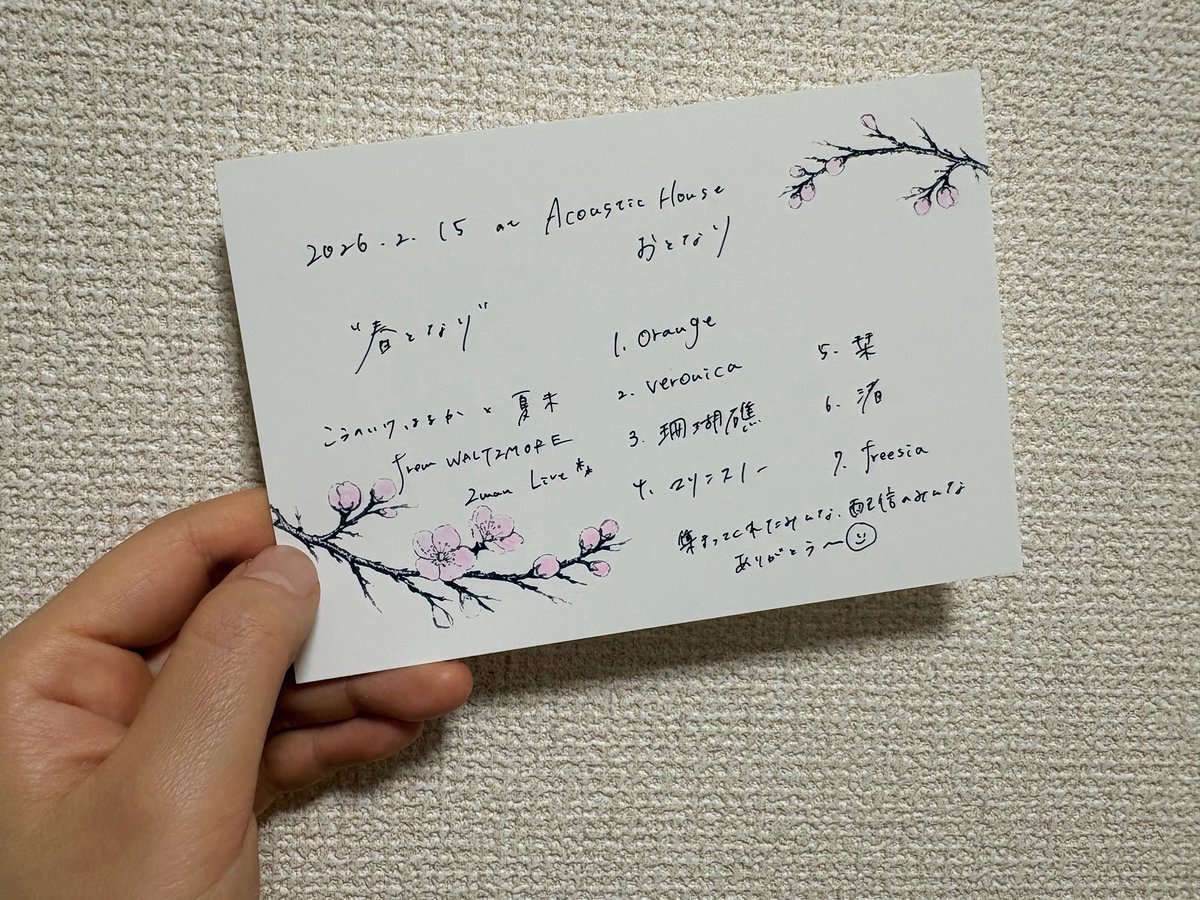 2026.2.15 at Acoustic House
おとなり
"春となり"
はるか と 夏未
from WALTZMORE
2man Live **
1. Orange
2. veronica
3. 珊瑚礁
4. マリンスノー
5. 栞
6. 渚
7. freesia
集まってくれたみんな、配信のみんな
ありがとう〜☺